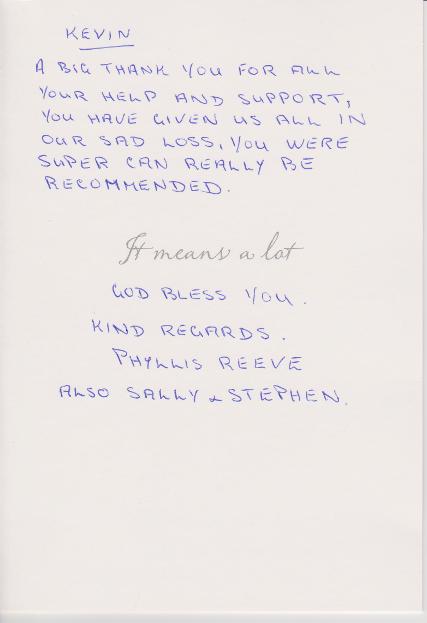 KEVIN
A BIG THANK YOU FOR ALL
YOUR HELP AND SUPPORT,
YOU HAVE GIVEN US ALL IN
OUR SAD LOSS, YOU WERE
SUPER CAN REALLY BE
RECOMMENDED.
It means a lot
GOD BLESS YOU.
KIND REGARDS.
PHYLLIS REEVE
ALSO SALLY & STEPHEN.